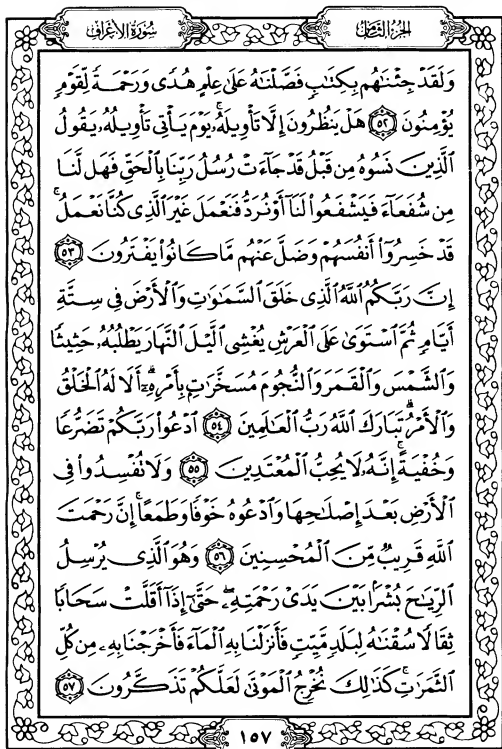 سُورَةُ الْأَعْرَافِ
الجُزْءُ الثَّامِنُ
وَلَقَدْ جِئْنَٰهُم بِكِتَٰبٍ فَصَّلْنَٰهُ عَلَىٰ عِلْمٍ هُدًى وَرَحْمَةً لِّقَوْمٍ
يُؤْمِنُونَ ٥٢ هَلْ يَنظُرُونَ إِلَّا تَأْوِيلَهُۥ ۚ يَوْمَ يَأْتِى تَأْوِيلُهُۥ يَقُولُ
ٱلَّذِينَ نَسُوهُ مِن قَبْلُ قَدْ جَآءَتْ رُسُلُ رَبِّنَا بِٱلْحَقِّ فَهَل لَّنَا
مِن شُفَعَآءَ فَيَشْفَعُوا۟ لَنَآ أَوْ نُرَدُّ فَنَعْمَلَ غَيْرَ ٱلَّذِى كُنَّا نَعْمَلُ ۚ
قَدْ خَسِرُوٓا۟ أَنفُسَهُمْ وَضَلَّ عَنْهُم مَّا كَانُوا۟ يَفْتَرُونَ ٥٣
إِنَّ رَبَّكُمُ ٱللَّهُ ٱلَّذِى خَلَقَ ٱلسَّمَٰوَٰتِ وَٱلْأَرْضَ فِى سِتَّةِ
أَيَّامٍ ثُمَّ ٱسْتَوَىٰ عَلَى ٱلْعَرْشِ يُغْشِى ٱلَّيْلَ ٱلنَّهَارَ يَطْلُبُهُۥ حَثِيثًا
وَٱلشَّمْسَ وَٱلْقَمَرَ وَٱلنُّجُومَ مُسَخَّرَٰتٍۭ بِأَمْرِهِۦٓ ۗ أَلَا لَهُ ٱلْخَلْقُ
وَٱلْأَمْرُ ۗ تَبَارَكَ ٱللَّهُ رَبُّ ٱلْعَٰلَمِينَ ٥٤ ٱدْعُوا۟ رَبَّكُمْ تَضَرُّعًا
وَخُفْيَةً ۚ إِنَّهُۥ لَا يُحِبُّ ٱلْمُعْتَدِينَ ٥٥ وَلَا تُفْسِدُوا۟ فِى
ٱلْأَرْضِ بَعْدَ إِصْلَٰحِهَا وَٱدْعُوهُ خَوْفًا وَطَمَعًا ۚ إِنَّ رَحْمَتَ
ٱللَّهِ قَرِيبٌ مِّنَ ٱلْمُحْسِنِينَ ٥٦ وَهُوَ ٱلَّذِى يُرْسِلُ
ٱلرِّيَٰحَ بُشْرًۢا بَيْنَ يَدَىْ رَحْمَتِهِۦ ۖ حَتَّىٰٓ إِذَآ أَقَلَّتْ سَحَابًا
ثِقَالًا سُقْنَٰهُ لِبَلَدٍ مَّيِّتٍ فَأَنزَلْنَا بِهِ ٱلْمَآءَ فَأَخْرَجْنَا بِهِۦ مِن كُلِّ
ٱلثَّمَرَٰتِ ۚ كَذَٰلِكَ نُخْرِجُ ٱلْمَوْتَىٰ لَعَلَّكُمْ تَذَكَّرُونَ ٥٧
١٥٧